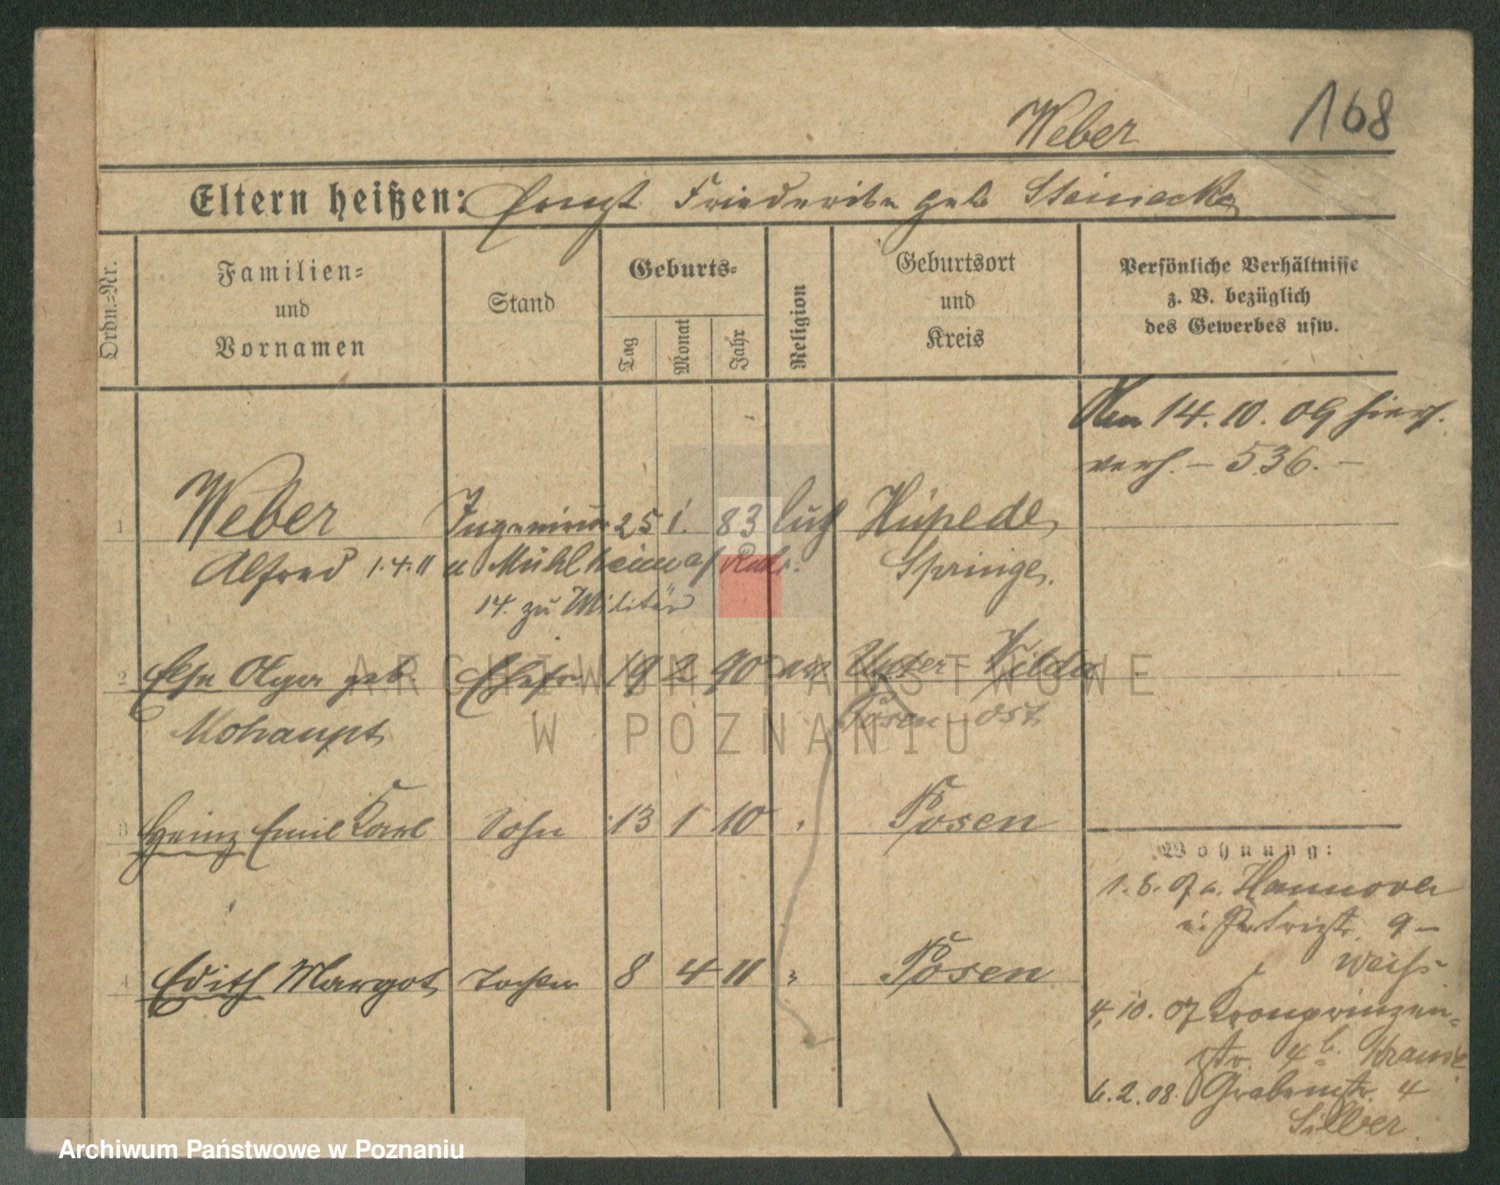 Weber 168
Eltern heißen: Ernst Friederike geb Steinecke
Ordn.-Nr.
Familien-
und
Vornamen
Stand
Geburts-
Tag
Monat
Jahr
Religion
Geburtsort
und
Kreis
Persönliche Verhältnisse
z. B. bezüglich
des Gewerbes usw.
14.10.09 hier
verh. – 536. –
1 Weber Ingenieur 25 1. 83 luth Hüpede
Alfred 1.4.11 n Mühlheim a/ Ruhr. Springe.
14. zu Militär
2 Else Olga geb. Ehefr 19 2 90 Unter-Wilda
Mohaupt Posen-Ost
3 Heinz Emil Karl Sohn 13 1 10 Posen
Wohnung:
1.8.07 a. Hannover
9 –
Weiss
4 Edith Margot Tochter 8 4 11 " Posen
4.10.07 Kronprinzen-
str. 4b. Krause
6.2.08. Grabenstr. 4
Silber
ARCHIWUM PAŃSTWOWE
W POZNANIU
Archiwum Państwowe w Poznaniu